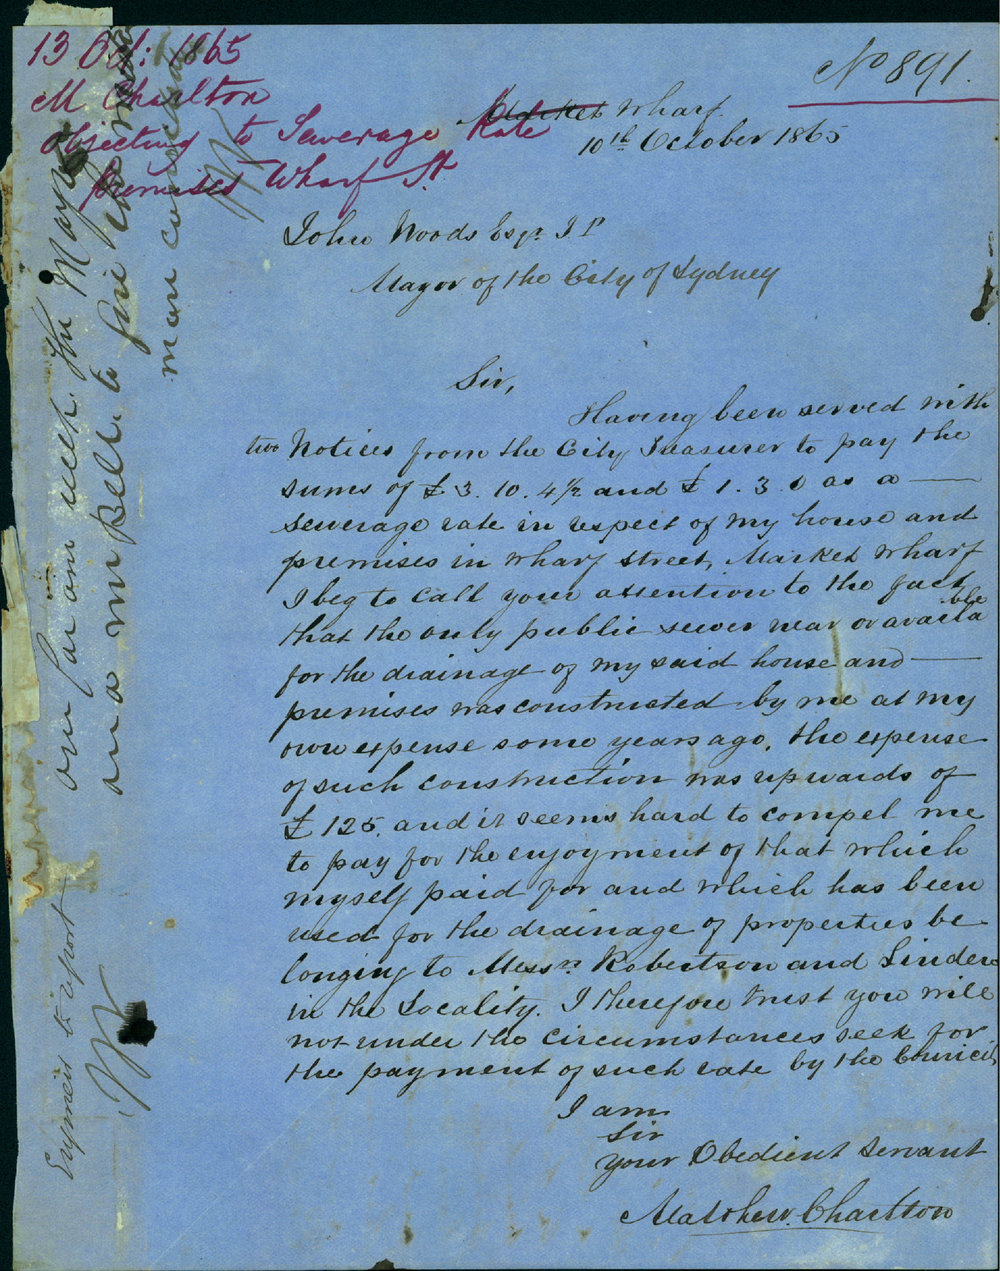 13 Oct: 1865
M Charlton
objecting to Sewerage Rate
Premises Wharf St
No 891.
Market Wharf
10th October 1865
John Woods Esqr J P
Mayor of the City of Sydney
Sir,
Having been served with
two Notices from the City Treasurer to pay the
sums of £3. 10. 4½ and £1. 3. 0 as a
sewerage rate in respect of my house and
premises in Wharf Street, Market Wharf
I beg to call your attention to the fact
that the only public sewer near or availa
ble
for the drainage of my said house and
premises was constructed by me at my
own expense some years ago, the expense
of such construction was upwards of
£125. and it seems hard to compel me
to pay for the enjoyment of that which
myself paid for and which has been
used for the drainage of properties be
longing to Messrs Robertson and Linden
in the Locality. I therefore trust you will
not under the circumstances seek for
the payment of such rate by the Council,
I am
Sir
Your Obedient Servant
Matthew. Charlton
Engineer to report
the Mayor
man